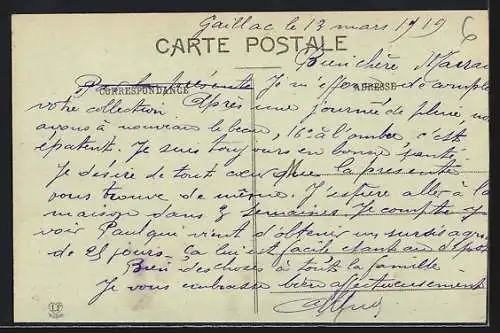 Gaillac le 13 mars 1919
CARTE POSTALE
Bien chère
CORRESPONDANCE
ADRESSE
Par la présente Je m'efforce de
votre collection Après une journée de pluie, n
avons à nouveau le beau, 16° à l'ombre c'est
épatant. Je suis toujours en bonne santé
Je désire de tout cœur que la présente
vous trouve de même. J'espère aller à la
maison dans 3 semaines. Je compte y
voir Paul qui vient d'obtenir un sursis
de 21 jours. Ça lui est facile étant au dépôt
Bien des choses à toute la famille
Je vous embrasse bien affectueusement